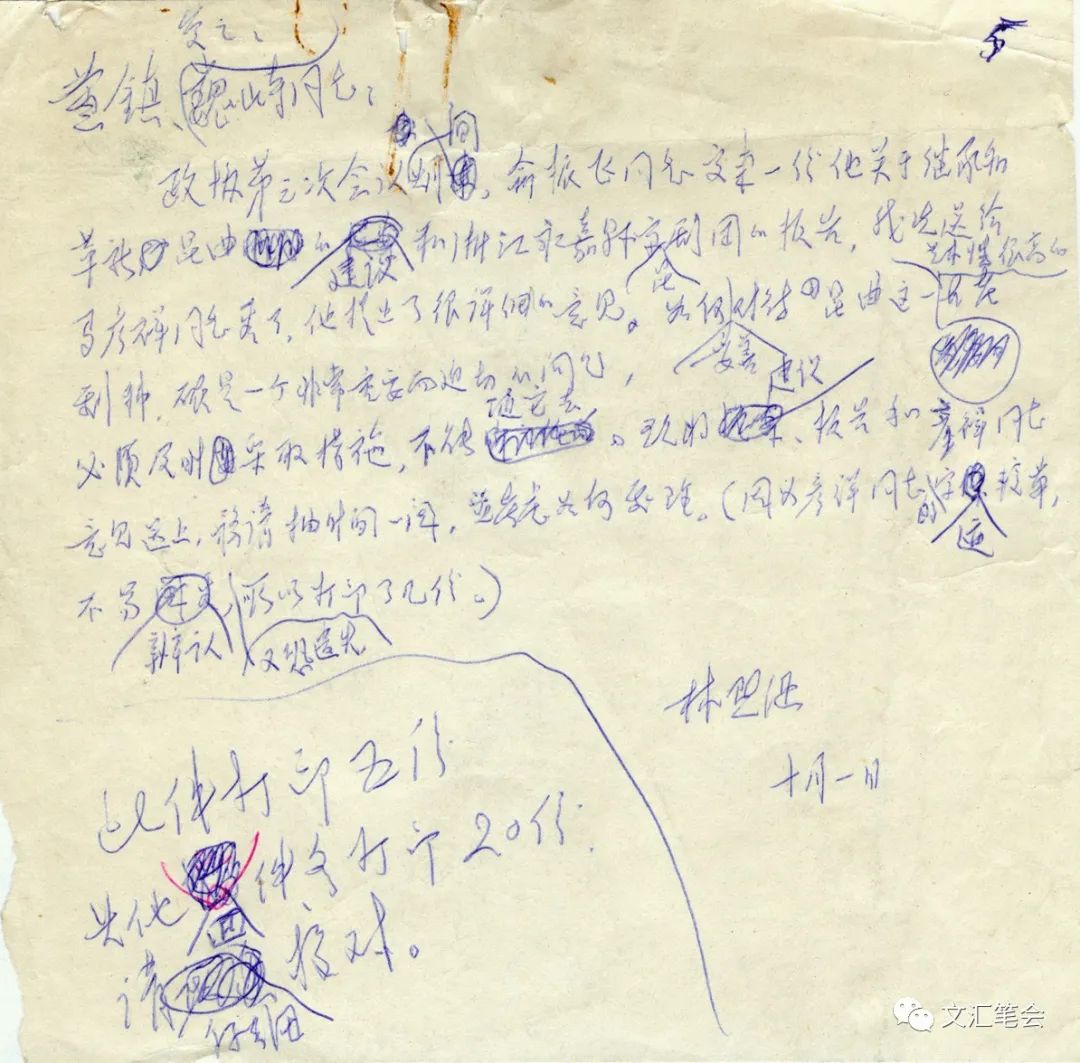 5
黄镇、魏峙同志：
政协第三次会议期间，俞振飞同志交来一份他关于继承和
革新昆曲的建议和浙江永嘉昆剧团的报告，我先送给
马彦祥同志看了，他提出了很详细的意见。如何对待昆曲这一艺术性很高的
剧种，确是一个非常重要而迫切的问题，
必须及时采取妥善措施，不能随它去。现将建议、报告和彦祥同志
意见送上，请抽时间一阅，并考虑如何处理。（因为彦祥同志的字迹较草，
不易辨认，又恐遗失，所以打印了几份。）
林默涵
十月一日
此件打印五份
其他四件各打印20份.
请校对。
文汇笔会